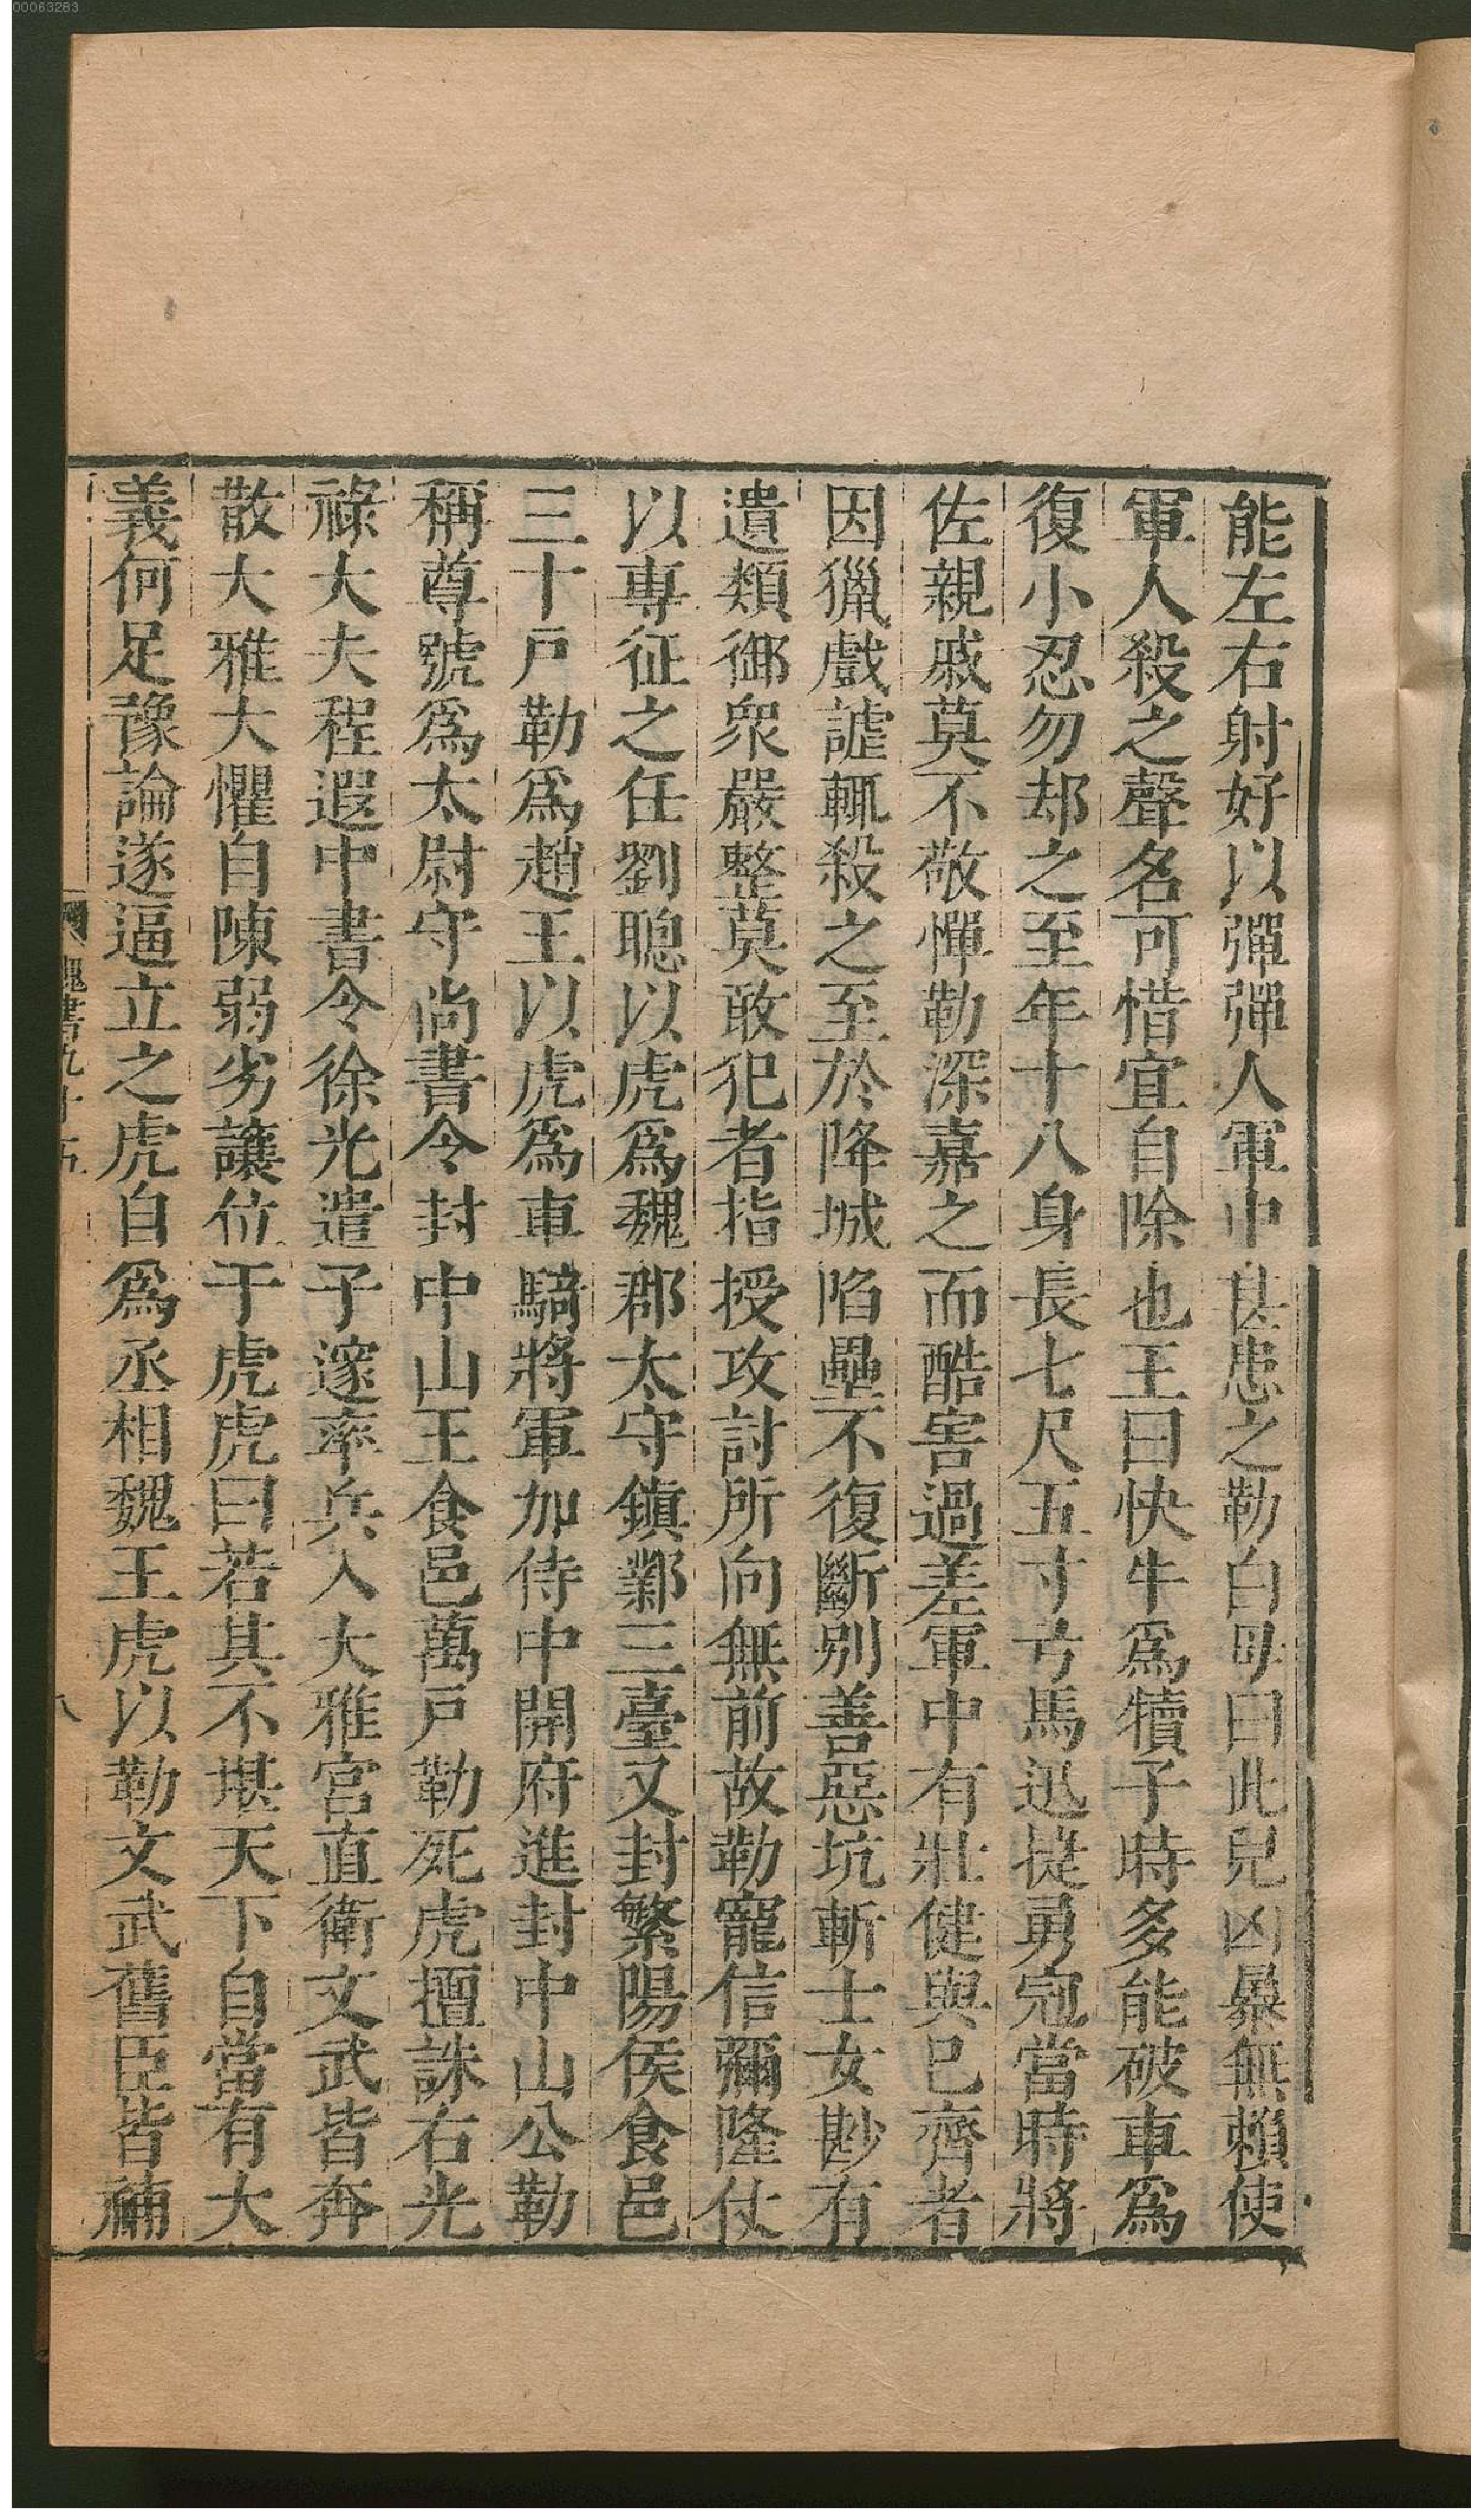 00063283
能左右射好以彈彈人軍中甚患之勒白母曰此兒凶暴無賴使
軍人殺之聲名可惜宜自除也王曰快牛爲犢子時多能破車爲
復小忍勿却之至年十八身長七尺五寸弓馬迅捷勇冠當時將
佐親戚莫不敬憚勒深嘉之而酷害過差軍中有壯健與已齊者
因獵戲謔輒殺之至於降城陷壘不復斷别善惡坑斬士女尠有
遺類御衆嚴整莫敢犯者指授攻討所向無前故勒寵信彌隆仗
以專征之任劉聰以虎爲魏郡太守鎭鄴三臺又封繁陽侯食邑
三十戸勒爲趙王以虎爲車騎將軍加侍中開府進封中山公勒
稱尊號爲太尉守尚書令封中山王食邑萬戸勒死虎擅誅右光
祿大夫程遐中書令徐光遣子邃率兵入大雅宫直衛文武皆奔
散大雅大懼自陳弱劣讓位于虎虎曰若其不堪天下自當有大
義何足豫論遂逼立之虎自爲丞相魏王虎以勒文武舊臣皆補
魏書九十五
八